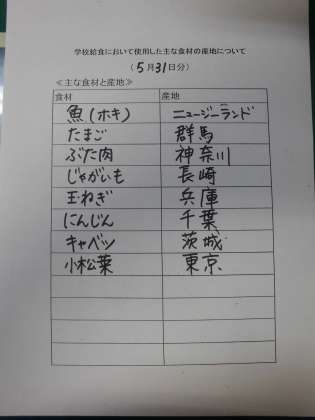 学校給食において使用した主な食材の産地について
(5月31日分)
≪主な食材と産地≫
食材 産地
魚(ホキ) ニュージーランド
たまご 群馬
ぶた肉 神奈川
じゃがいも 長崎
玉ねぎ 兵庫
にんじん 千葉
キャベツ 茨城
小松菜 東京